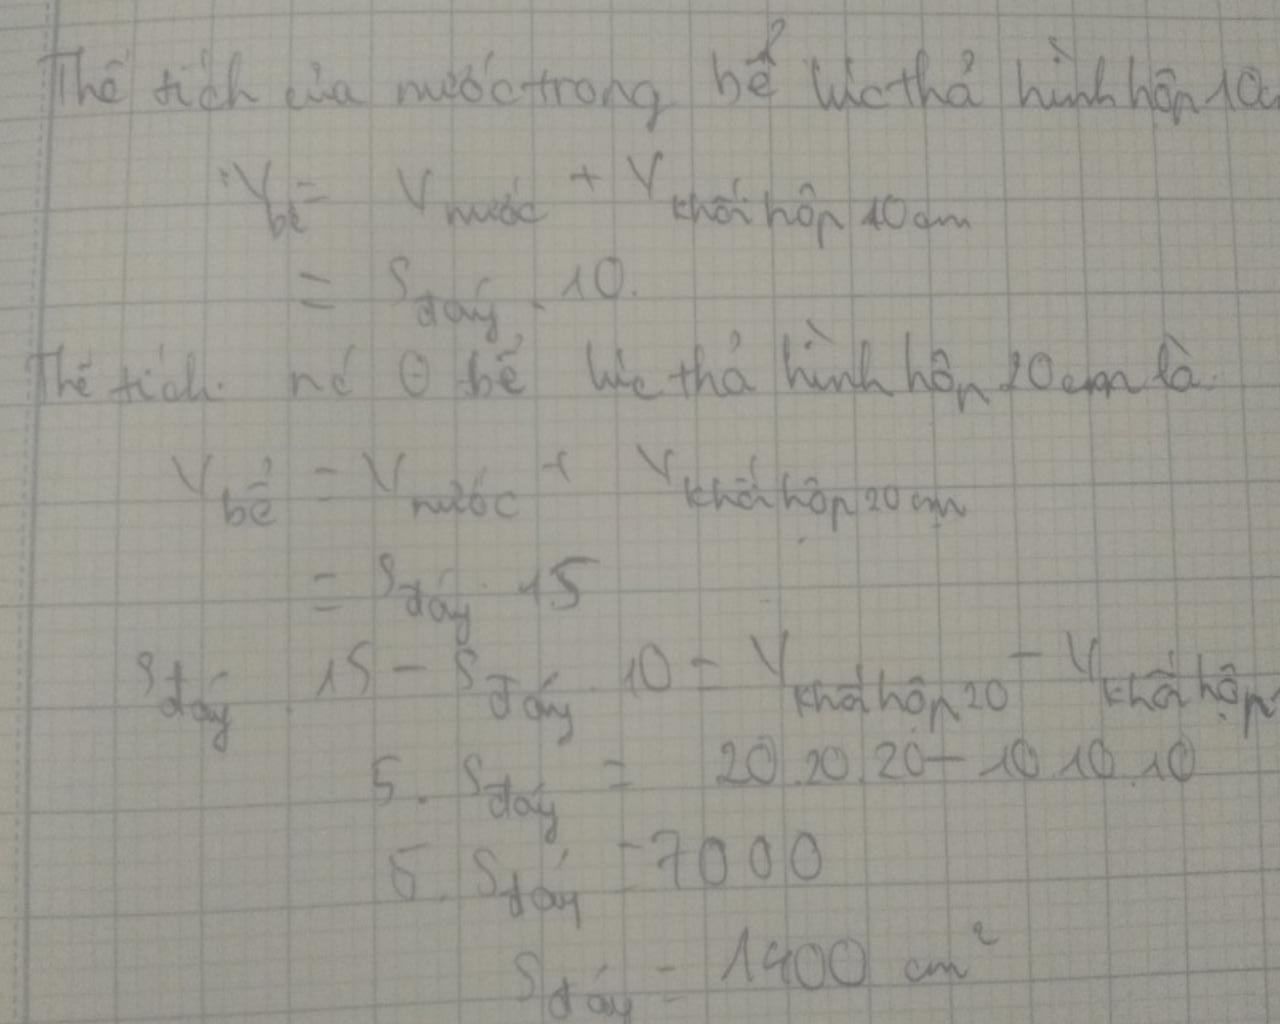 Thể tích của nước trong bể lúc thả hình hộp 10c
V bể = V nước + V khối hộp 10 cm
= S đáy . 10.
Thể tích nc ở bể lúc thả hình hộp 20 cm là
V bể = V nước + V khối hộp 20 cm
= S đáy . 15
S đáy . 15 - S đáy . 10 = V khối hộp 20 - V khối hộp
5. S đáy = 20.20.20 - 10.10.10
5. S đáy = 7000
S đáy = 1400 cm²